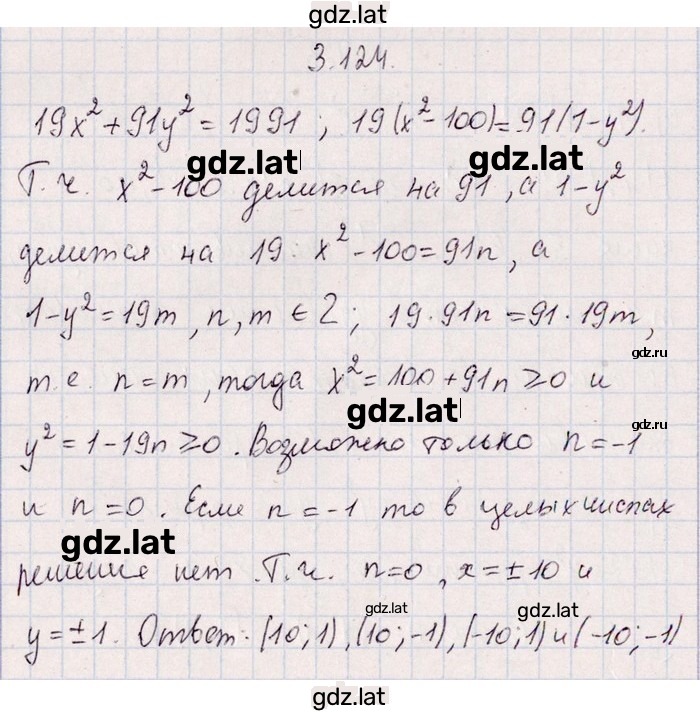 gdz.lat
3.124.
19x² + 91y² = 1991 ; 19(x² - 100) = 91(1 - y²).
gdz.lat
Т.ч. x² - 100 делится на 91, а 1 - y²
делится на 19. x² - 100 = 91n, а
1 - y² = 19m, n, m ∈ Z; 19 · 91n = 91 · 19m,
gdz.ru
т.е. n = m, тогда x² = 100 + 91n ≥ 0 и
gdz.lat
gdz.ru
y² = 1 - 19n ≥ 0. Возможно только n = -1
и n = 0. Если n = -1 то в целых числах
gdz.lat
решения нет. Т.ч. n = 0, x = ±10 и
gdz.lat
gdz.lat
y = ±1. Ответ: (10; 1), (10; -1), (-10; 1) и (-10; -1)
gdz.lat